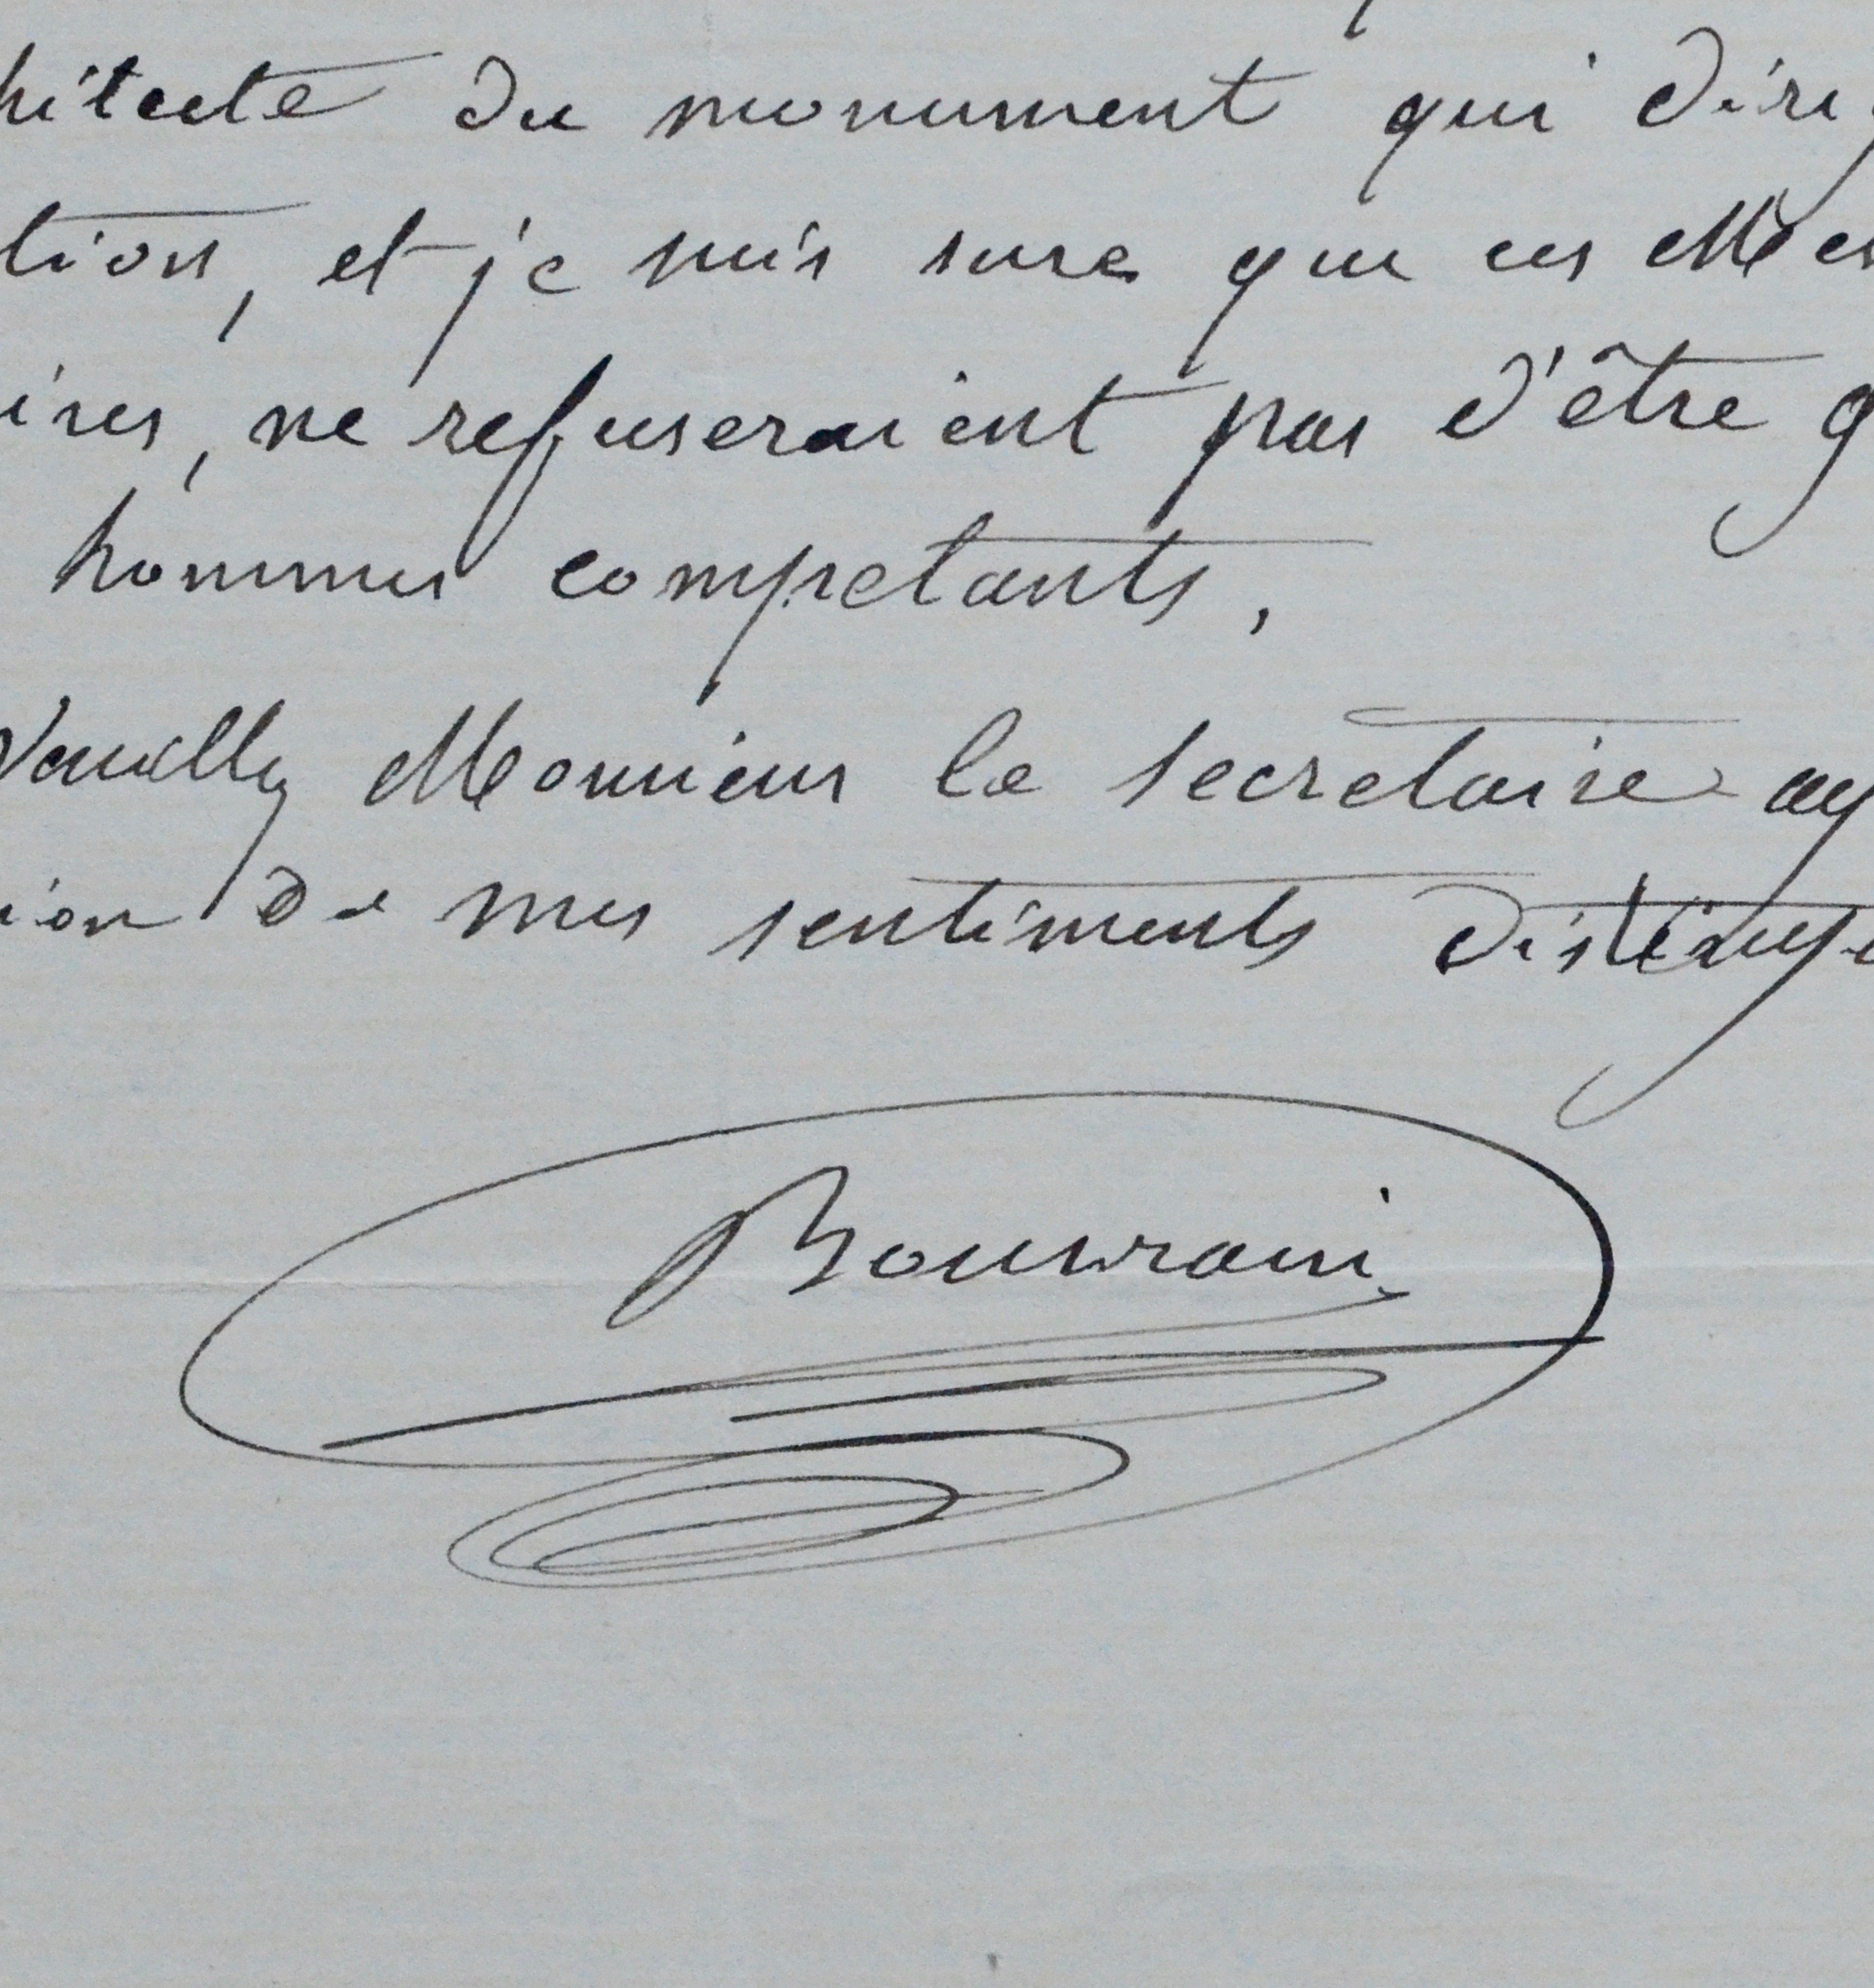 hitecte du monument qui dirig
tion, et je suis sure que ces Mes
ires, ne refuseraient pas d'être g
hommes competants,
Veuilly Monsieur le secretaire ag
ion de mes sentiments disting